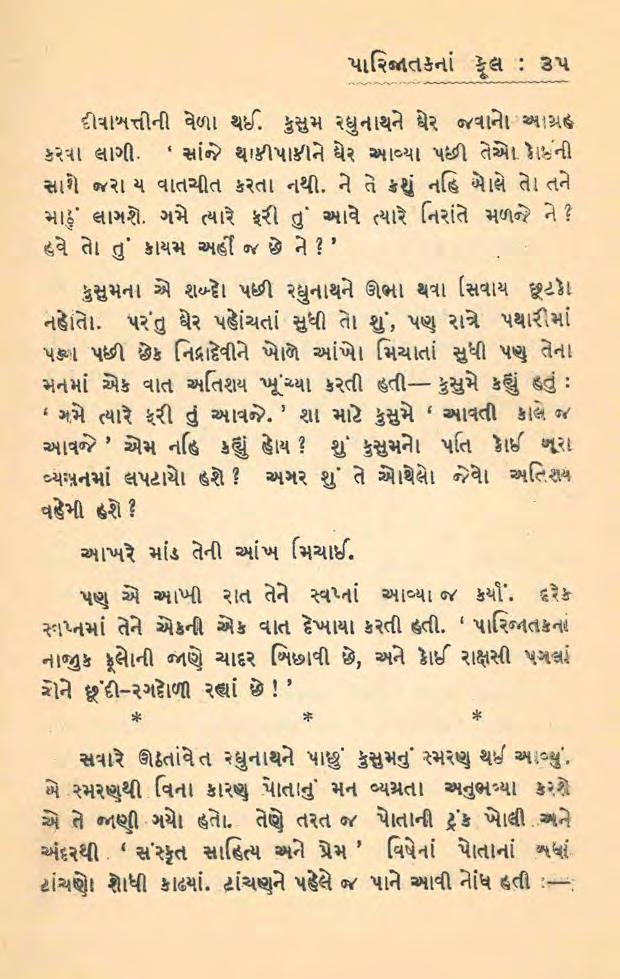 પારિજાતકનાં ફૂલ : ૩૫
દીવાબત્તીની વેળા થઈ. કુસુમ રઘુનાથને ઘેર જવાનો આગ્રહ
કરવા લાગી. ‘ સાંજે થાકીપાકીને ઘેર આવ્યા પછી તેઓ કોઈની
સાથે જરા ય વાતચીત કરતા નથી. ને તે કશું નહિ બોલે તો તને
માઠું લાગશે. ગમે ત્યારે ફરી તું આવે ત્યારે નિરાંતે મળજે ને ?
હવે તો તું કાયમ અહીં જ છે ને ? ’
કુસુમના એ શબ્દો પછી રઘુનાથને ઊભા થવા સિવાય છૂટકો
નહોતો. પરંતુ ઘેર પહોંચતાં સુધી તો શું, પણ રાત્રે પથારીમાં
પડ્યા પછી છેક નિદ્રાદેવીને ખોળે આંખો મિચાતાં સુધી પણ તેના
મનમાં એક વાત અતિશય ખૂંચ્યા કરતી હતી— કુસુમે કહ્યું હતું :
‘ ગમે ત્યારે ફરી તું આવજે. ’ શા માટે કુસુમે ‘ આવતી કાલે જ
આવજે ’ એમ નહિ કહ્યું હોય ? શું કુસુમનો પતિ કોઈ બૂરા
વ્યસનમાં લપટાયો હશે ? અગર શું તે ઓથેલો જેવો અતિશય
વહેમી હશે ?
આખરે માંડ તેની આંખ મિચાઈ.
પણ એ આખી રાત તેને સ્વપ્નાં આવ્યા જ કર્યાં. દરેક
સ્વપ્નમાં તેને એકની એક વાત દેખાયા કરતી હતી. ‘ પારિજાતકનાં
નાજુક ફૂલોની જાણે ચાદર બિછાવી છે, અને કોઈ રાક્ષસી પગલાં
એને છૂંદી–રગદોળી રહ્યાં છે ! ’
* * *
સવારે ઊઠતાંવેત રઘુનાથને પાછું કુસુમનું સ્મરણ થઈ આવ્યું.
એ સ્મરણથી વિના કારણ પોતાનું મન વ્યગ્રતા અનુભવ્યા કરશે
એ તે જાણી ગયો હતો. તેણે તરત જ પોતાની ટ્રંક ખોલી અને
અંદરથી ‘ સંસ્કૃત સાહિત્ય અને પ્રેમ ’ વિષેનાં પોતાનાં બધાં
ટાંચણો શોધી કાઢયાં. ટાંચણને પહેલે જ પાને આવી નોંધ હતી :—